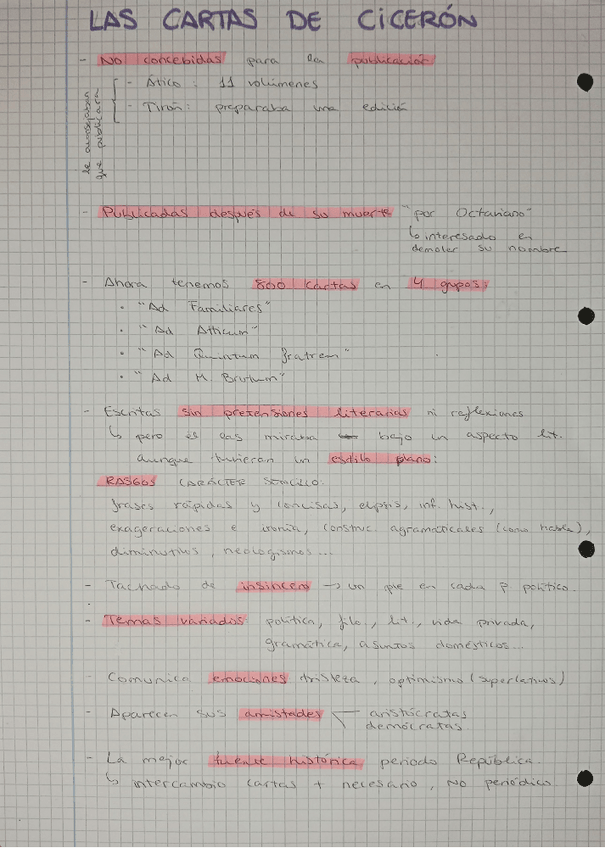 LAS CARTAS DE CICERÓN
- No concebidas para la publicación
le aconsejaban que publicara
- Ático: 11 volúmenes
- Tirón: preparaba una edición
- Publicadas después de su muerte "por Octaviano"
↳ interesado en
demoler su nombre
- Ahora tenemos 800 cartas en 4 grupos
• "Ad Familiares"
• "Ad Atticum"
• "Ad Quintum fratrem"
• "Ad M Brutum"
- Escritas sin pretensiones literarias ni reflexiones
↳ pero él las miraba bajo un aspecto lit.
aunque tuvieran un estilo plano:
RASGOS CARÁCTER SENCILLO:
frases rápidas y concisas, elipsis, inf. hist.,
exageraciones e ironía, construc. agramaticales (como habla),
diminutivos, neologismos...
- Tachado de insincero → un pie en cada P político.
- Temas variados política, filo., lit., vida privada,
gramática, asuntos domésticos...
- Comunica emociones tristeza, optimismo (superlativos)
- Aparecen sus amistades aristócratas
demócratas
- La mejor fuente histórica periodo República.
↳ intercambio cartas + necesario, NO periódico